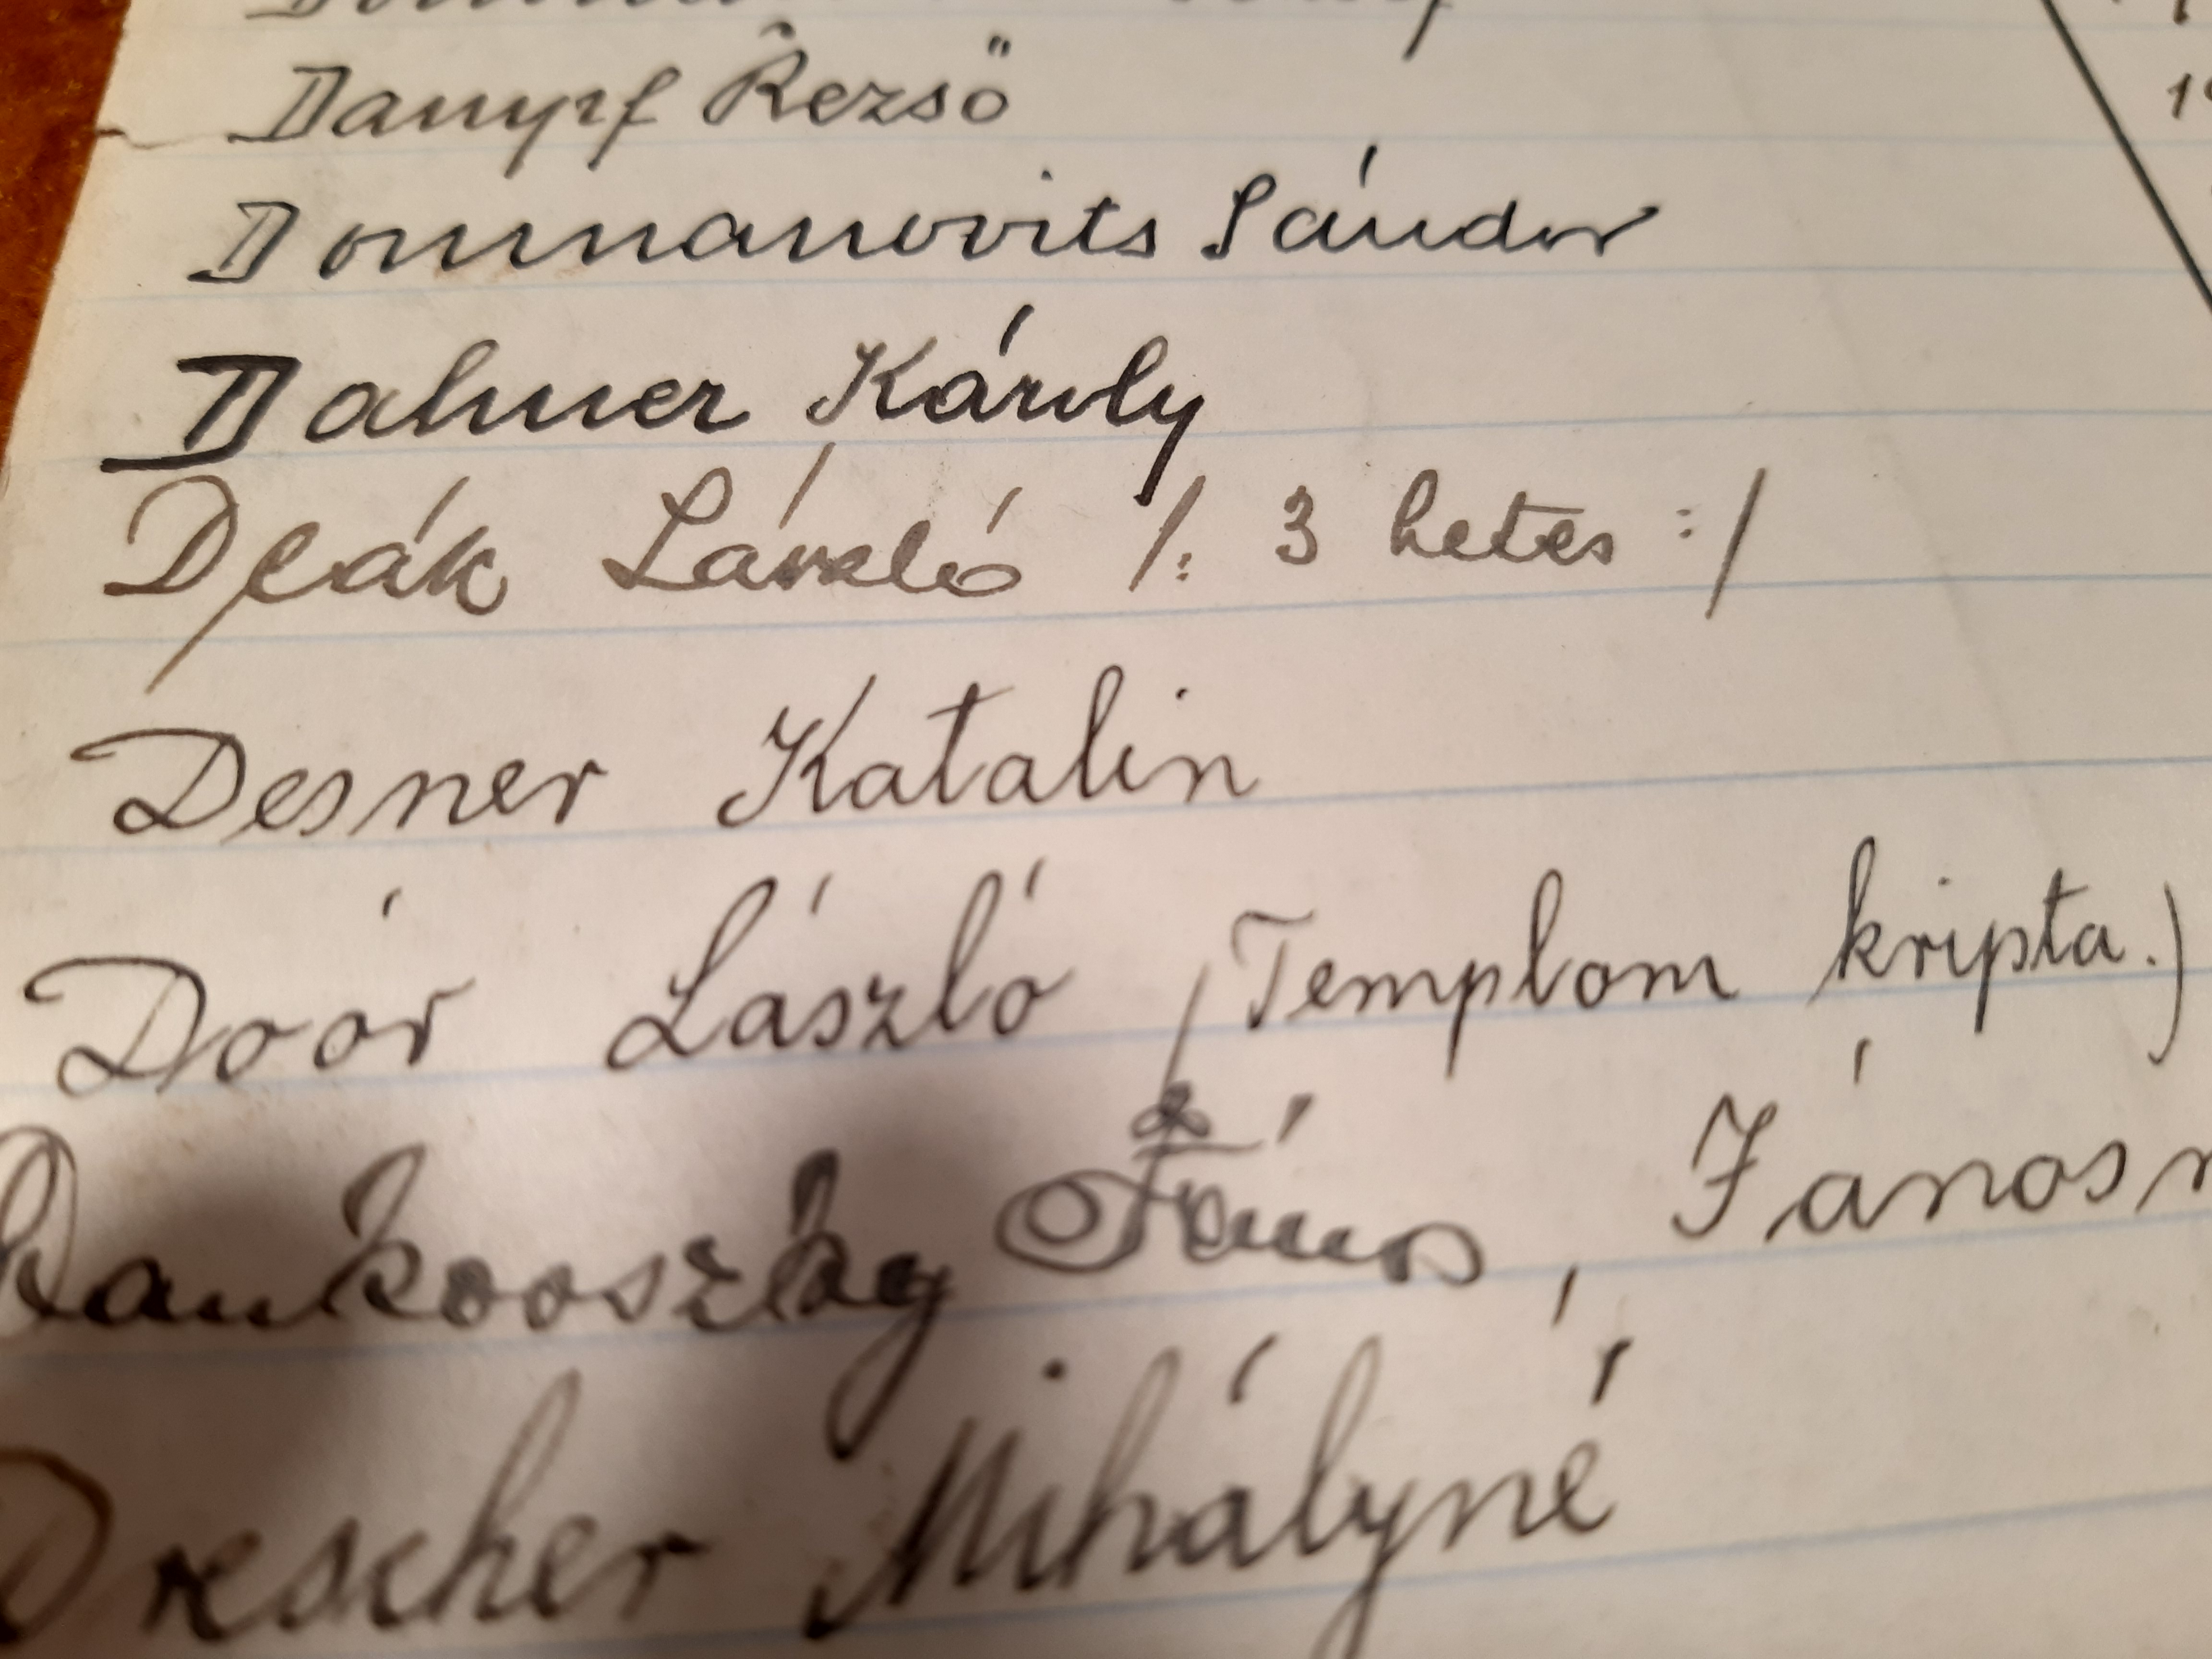 Dampf Rezső
Dommanovits Sándor
Dahner Károly
Deák László /: 3 hetes :/
Desner Katalin
Doór László (Templom kripta.)
Dankovszky János, Jánosn
Drescher Mihályné